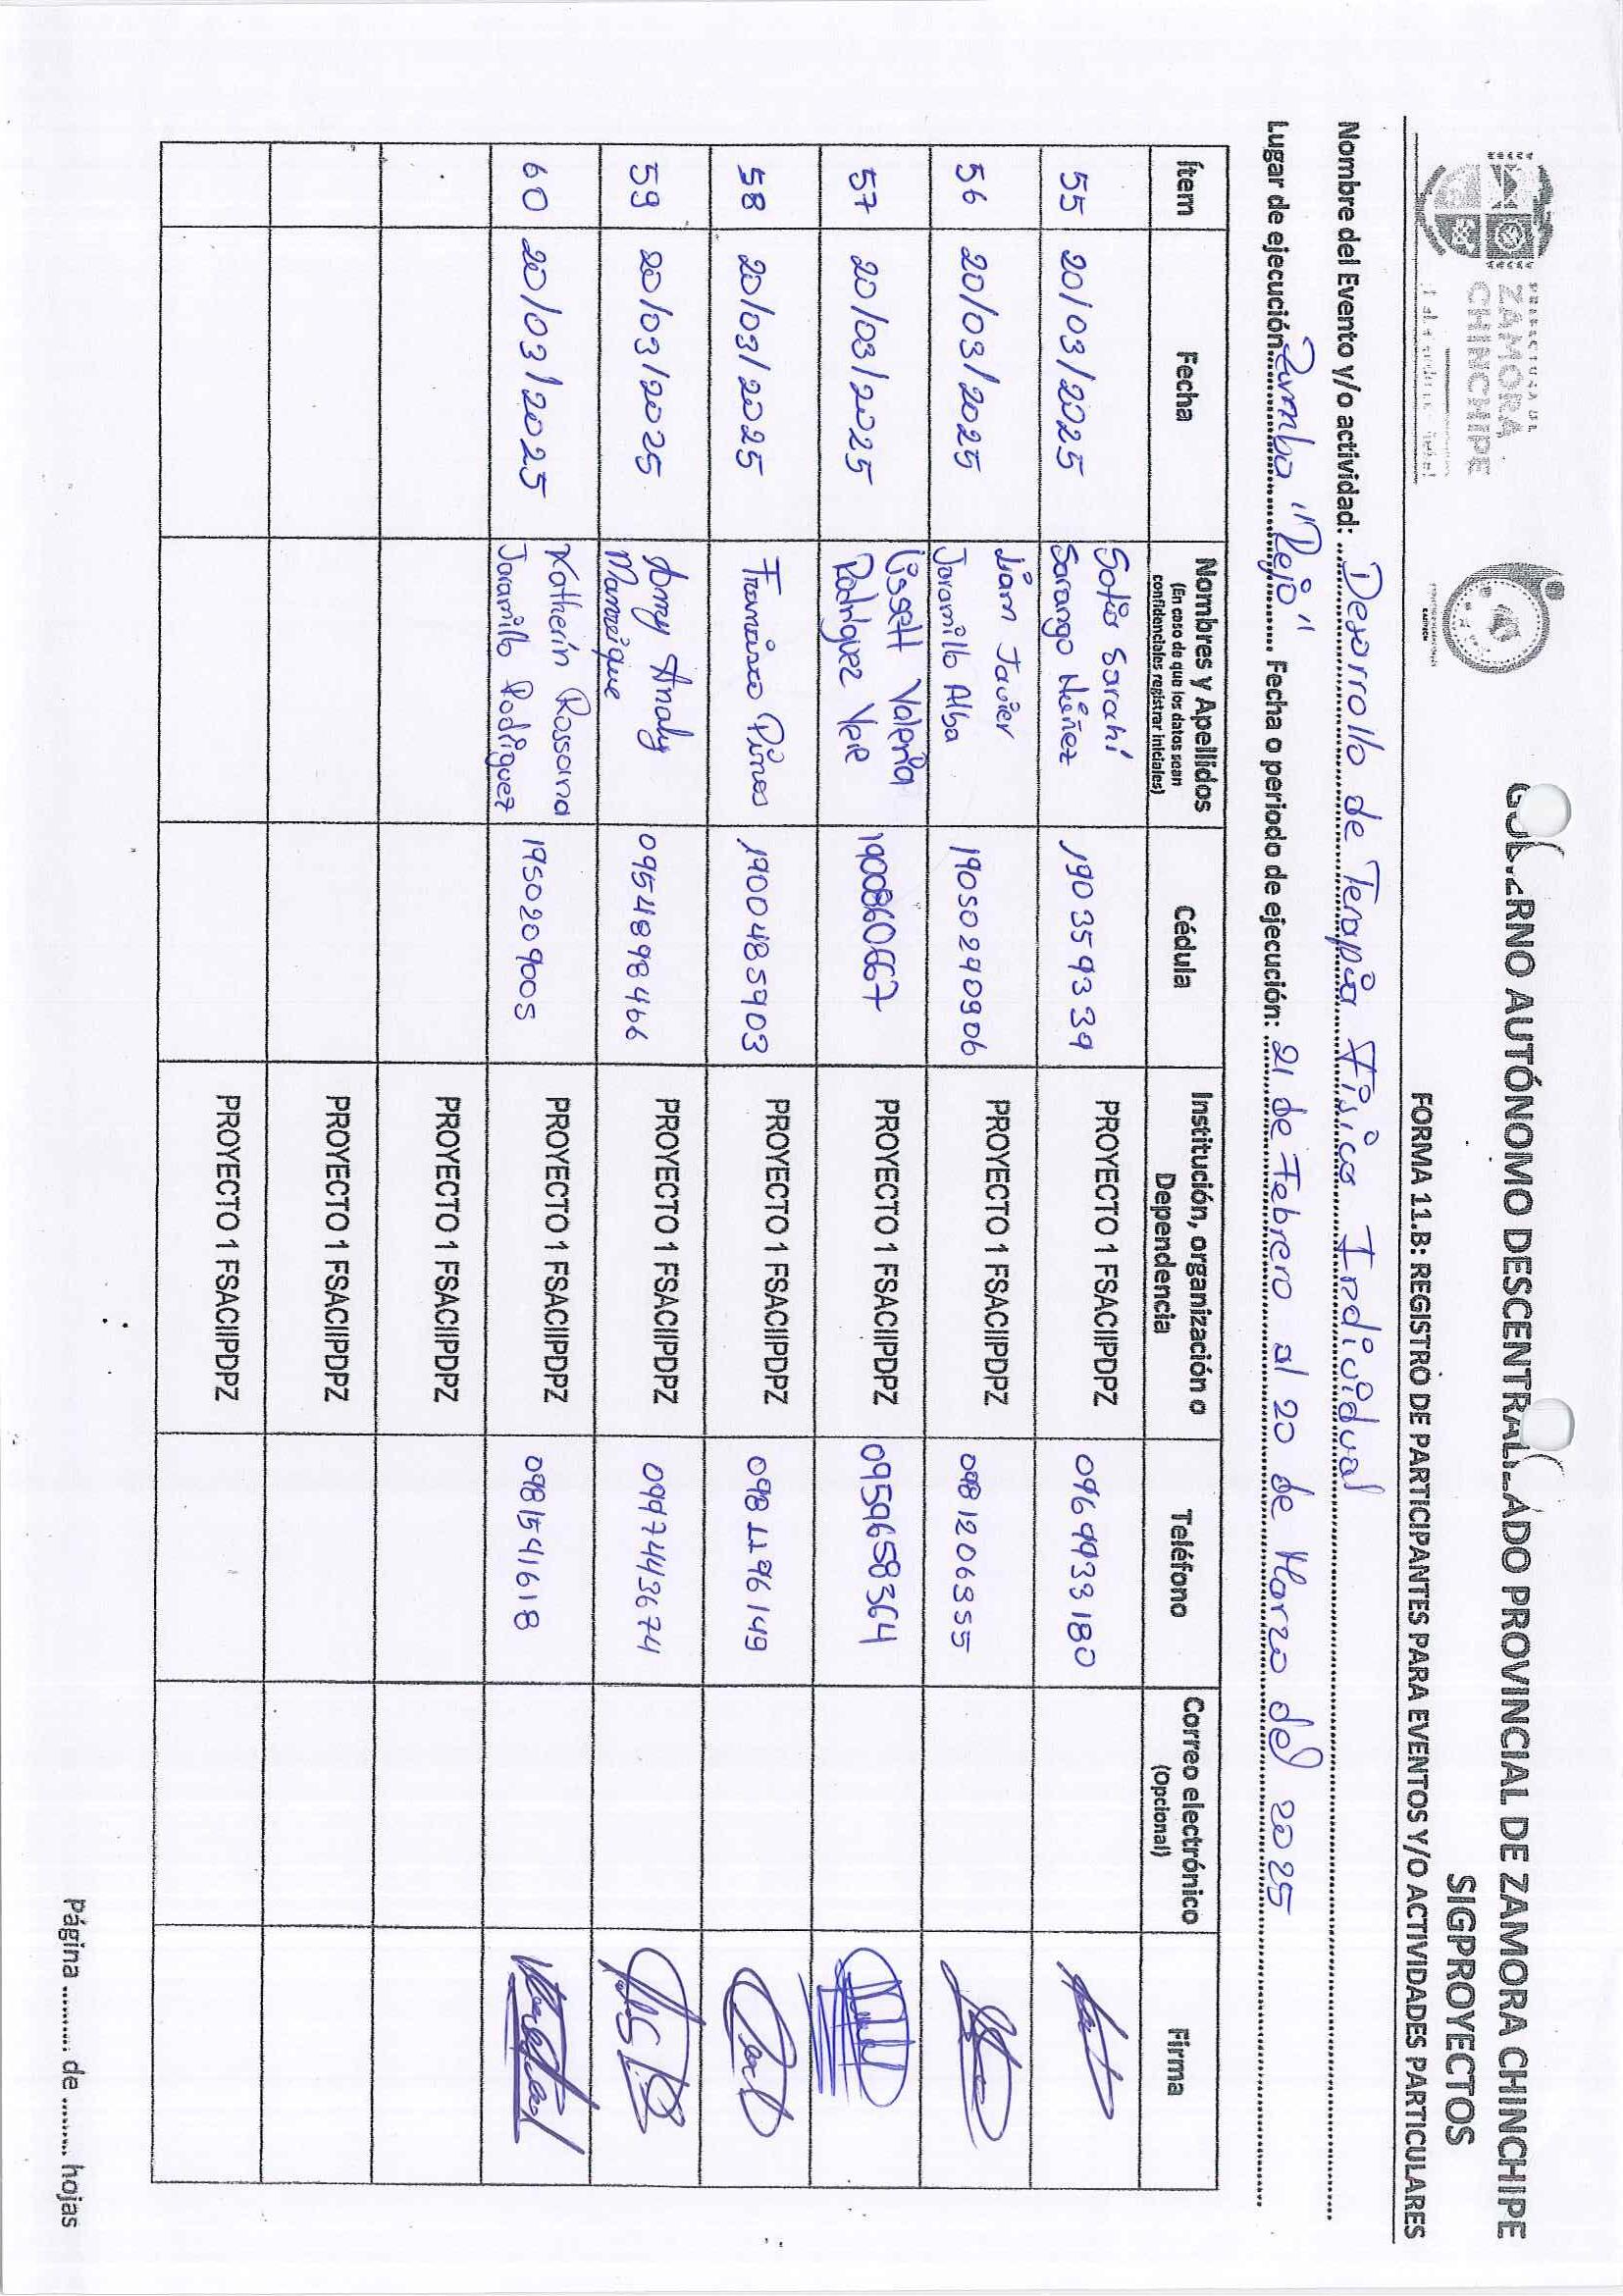 ZAMORA
CHINCHIPE
GOBIERNO AUTÓNOMO DESCENTRALIZADO PROVINCIAL DE ZAMORA CHINCHIPE
SIGPROYECTOS
FORMA 11.B: REGISTRO DE PARTICIPANTES PARA EVENTOS Y/O ACTIVIDADES PARTICULARES
Nombre del Evento y/o actividad: Desarrollo de Terapia Física Individual
Lugar de ejecución: Zumba "Pejo" Fecha o periodo de ejecución: 21 de Febrero al 20 de Marzo del 2025
Ítem Fecha Nombres y Apellidos (En caso de que los datos sean confidenciales registrar iniciales) Cédula Institución, organización o Dependencia Teléfono Correo electrónico (Opcional) Firma
55 20/03/2025 Sofia Sarahí Sarango Núñez 1903559339 PROYECTO 1 FSACIIPDPZ 0969933180
56 20/03/2025 Liam Javier Jaramillo Alba 1905029090 6 PROYECTO 1 FSACIIPDPZ 0981206355
57 20/03/2025 Lissett Valeria Rodríguez 1900860667 PROYECTO 1 FSACIIPDPZ 0959658364
58 20/03/2025 Francisco 1900485903 PROYECTO 1 FSACIIPDPZ 0981196149
59 20/03/2025 Amy Anahy Manrique 0954898466 PROYECTO 1 FSACIIPDPZ 0997443674
60 20/03/2025 Katherin Rossana Jaramillo Rodríguez 1950209005 PROYECTO 1 FSACIIPDPZ 0981541618
PROYECTO 1 FSACIIPDPZ
PROYECTO 1 FSACIIPDPZ
PROYECTO 1 FSACIIPDPZ
Página ......... de ......... hojas